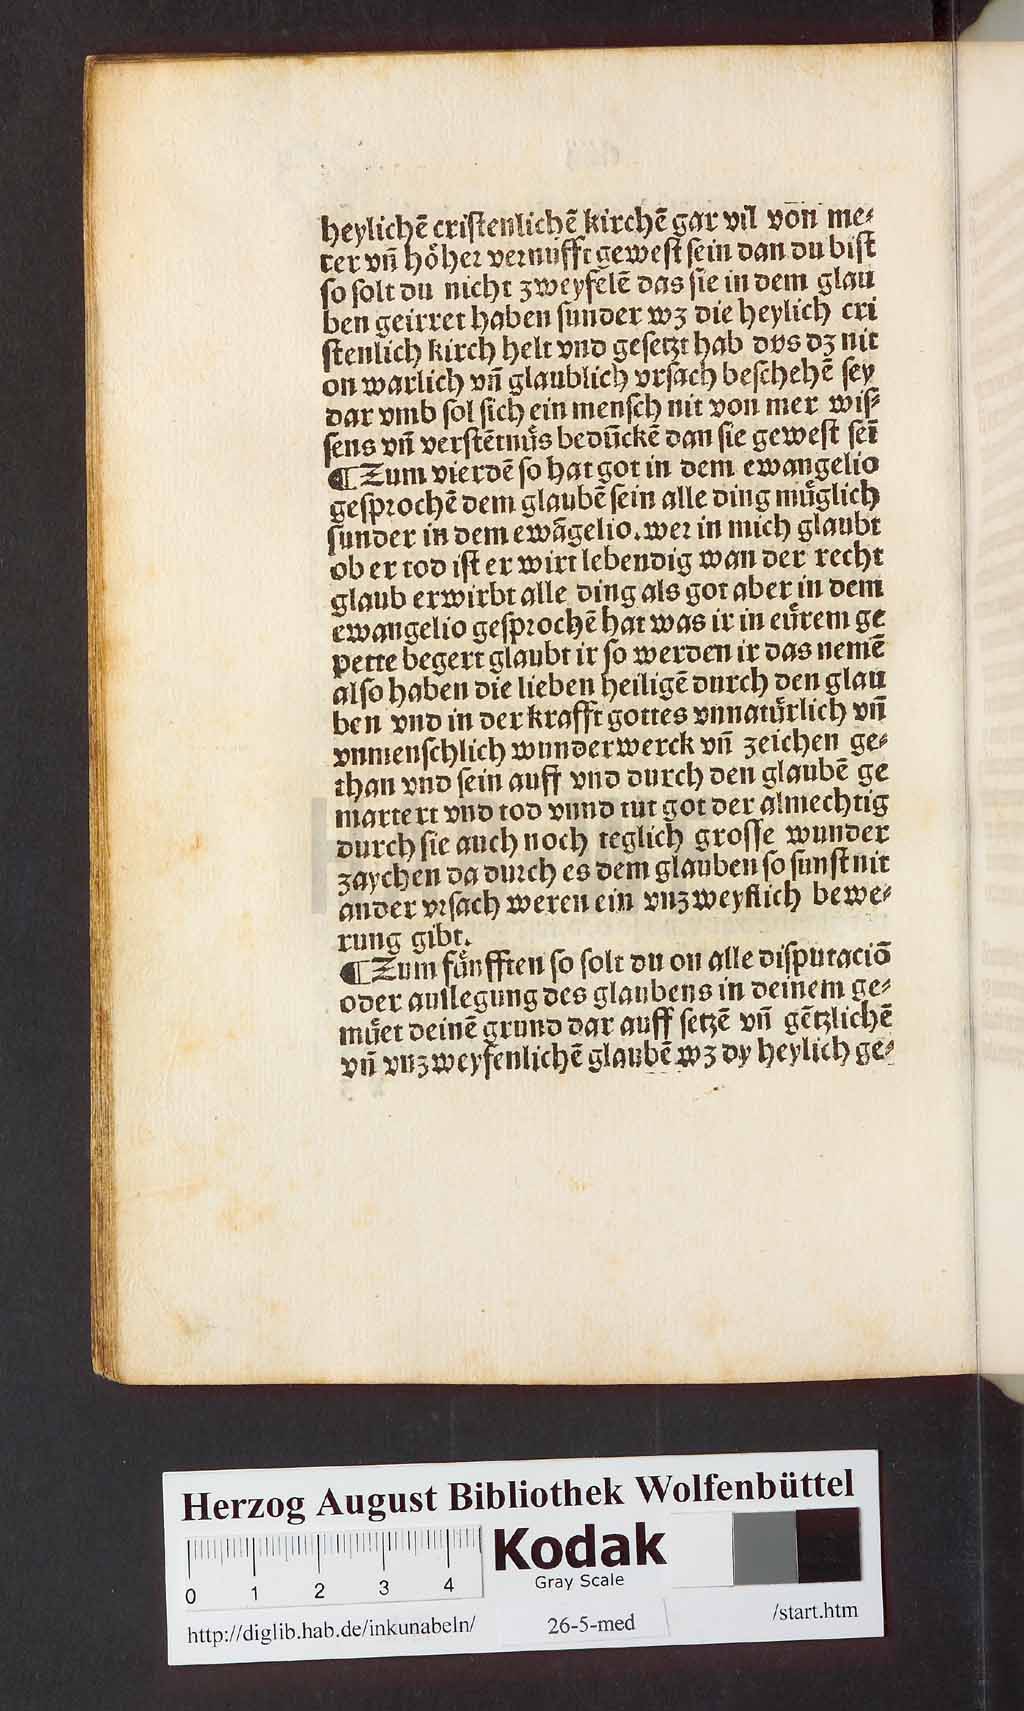 heylichē cristenlichē kirchē gar vil von me⸗
rer vn̄ hoͤher vernufft gewest sein dan du bist
so solt du nicht zweyfelē das sie in dem glau
ben geirret haben sunder wz die heylich cri
stenlich kirch helt vnd gesetzt hab dvs dz nit
on warlich vn̄ glaublich vrsach beschehē sey
dar vmb sol sich ein mensch nit von mer wis⸗
sens vn̄ verstētnuͤs bedūckē dan sie gewest seī
¶ Zum vierdē so hat got in dem ewangelio
gesprochē dem glaubē sein alle ding muͤglich
sunder in dem ewāgelio. wer in mich glaubt
ob er tod ist er wirt lebendig wan der recht
glaub erwirbt alle ding als got aber in dem
ewangelio gesprochē hat was ir in euͤrem ge
pette begert glaubt ir so werden ir das nemē
also haben die lieben heiligē durch den glau
ben vnd in der krafft gottes vnnatuͤrlich vn̄
vnmenschlich wunderwerck vn̄ zeichen ge⸗
than vnd sein auff vnd durch den glaubē ge
martert vnd tod vnnd tut got der almechtig
durch sie auch noch teglich grosse wunder
zaychen da durch es dem glauben so sunst nit
ander vrsach weren ein vnzweyflich bewe⸗
rung gibt.
¶ Zum fuͤnfften so solt du on alle disputaciō
oder auslegung des glaubens in deinem ge⸗
muͤet deinē grund dar auff setzē vn̄ gētzlichē
vn̄ vnzweyfenlichē glaubē wz dy heylich ge⸗
Herzog August Bibliothek Wolfenbüttel
Kodak
Gray Scale
0 1 2 3 4
http://diglib.hab.de/inkunabeln/
26-5-med
/start.htm